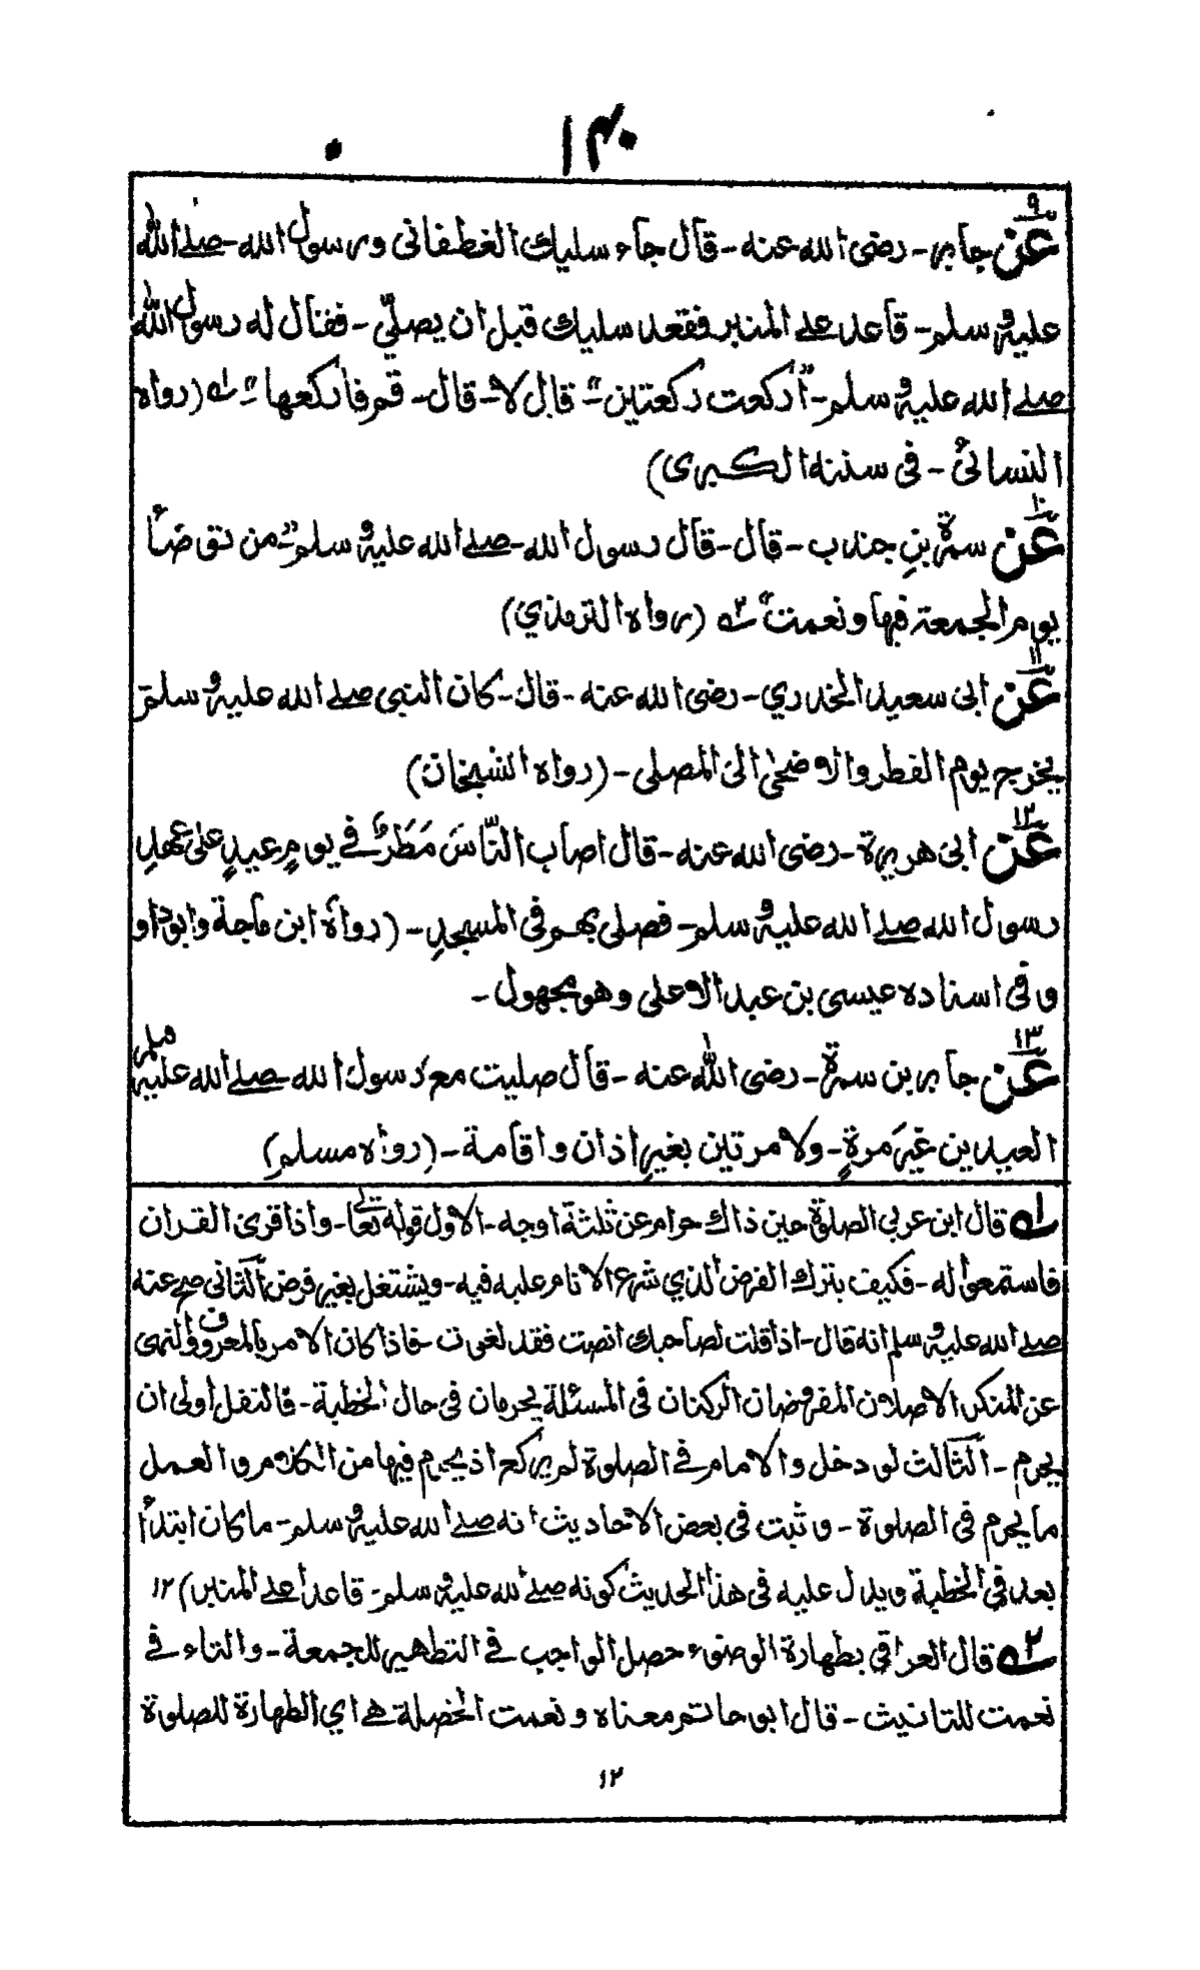 ۱۴۰
۹
عن جابر۔ رضی الله عنه۔ قال جاء سلیك الغطفانی ورسول الله۔ صلے الله
علیه وسلم۔ قاعد علے المنبر فقعد سلیك قبل ان یصلّی۔ فقال له رسول الله
صلے الله علیه وسلم۔ "أركعت ركعتین" قال لا۔ قال۔ قم فأركعها" ۱ (رواه
النسائی۔ فی سننه الكبری)
۱۰
عن سمرة بنِ جندب۔ قال۔ قال رسول الله۔ صلے الله علیه وسلم۔ "من توضأ
یوم الجمعة فبها ونعمت" ۲ (رواه الترمذي)
۱۱
عن ابی سعید الخدري۔ رضی الله عنه۔ قال۔ كان النبی صلے الله علیه وسلم۔
یخرج یوم الفطر والاضحٰی الی المصلی۔ (رواه الشیخان)
۱۲
عن ابی هریرة۔ رضی الله عنه۔ قال اصاب النّاسَ مَطَرٌ فے یومِ عیدٍ علی عهدِ
رسول الله صلے الله علیه وسلم۔ فصلی بهم فی المسجدِ۔ (رواه ابن ماجة وابوداو
و فی اسناده عیسی بن عبد الاعلی وهو مجهول۔
۱۳
عن جابر بن سمرة۔ رضی الله عنه۔ قال صلیت مع رسول الله صلے الله علیه وسلم
العیدین غیرَ مرةٍ۔ ولا مرتین بغیرِ اذان واقامة۔ (رواه مسلم)
۱ قال ابن عربی الصلوة حین ذاك حرام عن ثلثة اوجه۔ الاول قوله تعالٰی۔ واذا قرئ القران
فاستمعوا له۔ فكیف یترك الفرض الذي شرع الامام علیه فیه۔ ویشتغل بغیر فرض الثانی صح عنه
صلے الله علیه وسلم انه قال۔ اذا قلت لصاحبك انصت فقد لغوت۔ فاذا كان الامر بالمعروف والنهی
عن المنكر الاصلان المفروضان الركنان فی المسئلة یحرمان فی حال الخطبة۔ فالنفل أولی ان
یحرم۔ الثالث لو دخل والامام فے الصلوة لم یركع اذ یحرم فیها من الكلام والعمل
ما یحرم فی الصلوة۔ وثبت فی بعض الاحادیث انه صلے الله علیه وسلم۔ ما كان ابتدأ
بعد فی الخطبة ویدل علیه فی هذا الحدیث كونه صلے الله علیه وسلم۔ قاعدا علے المنبر) ۱۲
۲ قال العراقي بطهارة الوضوء حصل الواجب فے التطهیر للجمعة۔ والتاء فے
نعمت للتانیث۔ قال ابو حاتم معناه ونعمت الخصلة هے اي الطهارة للصلوة
۱۲